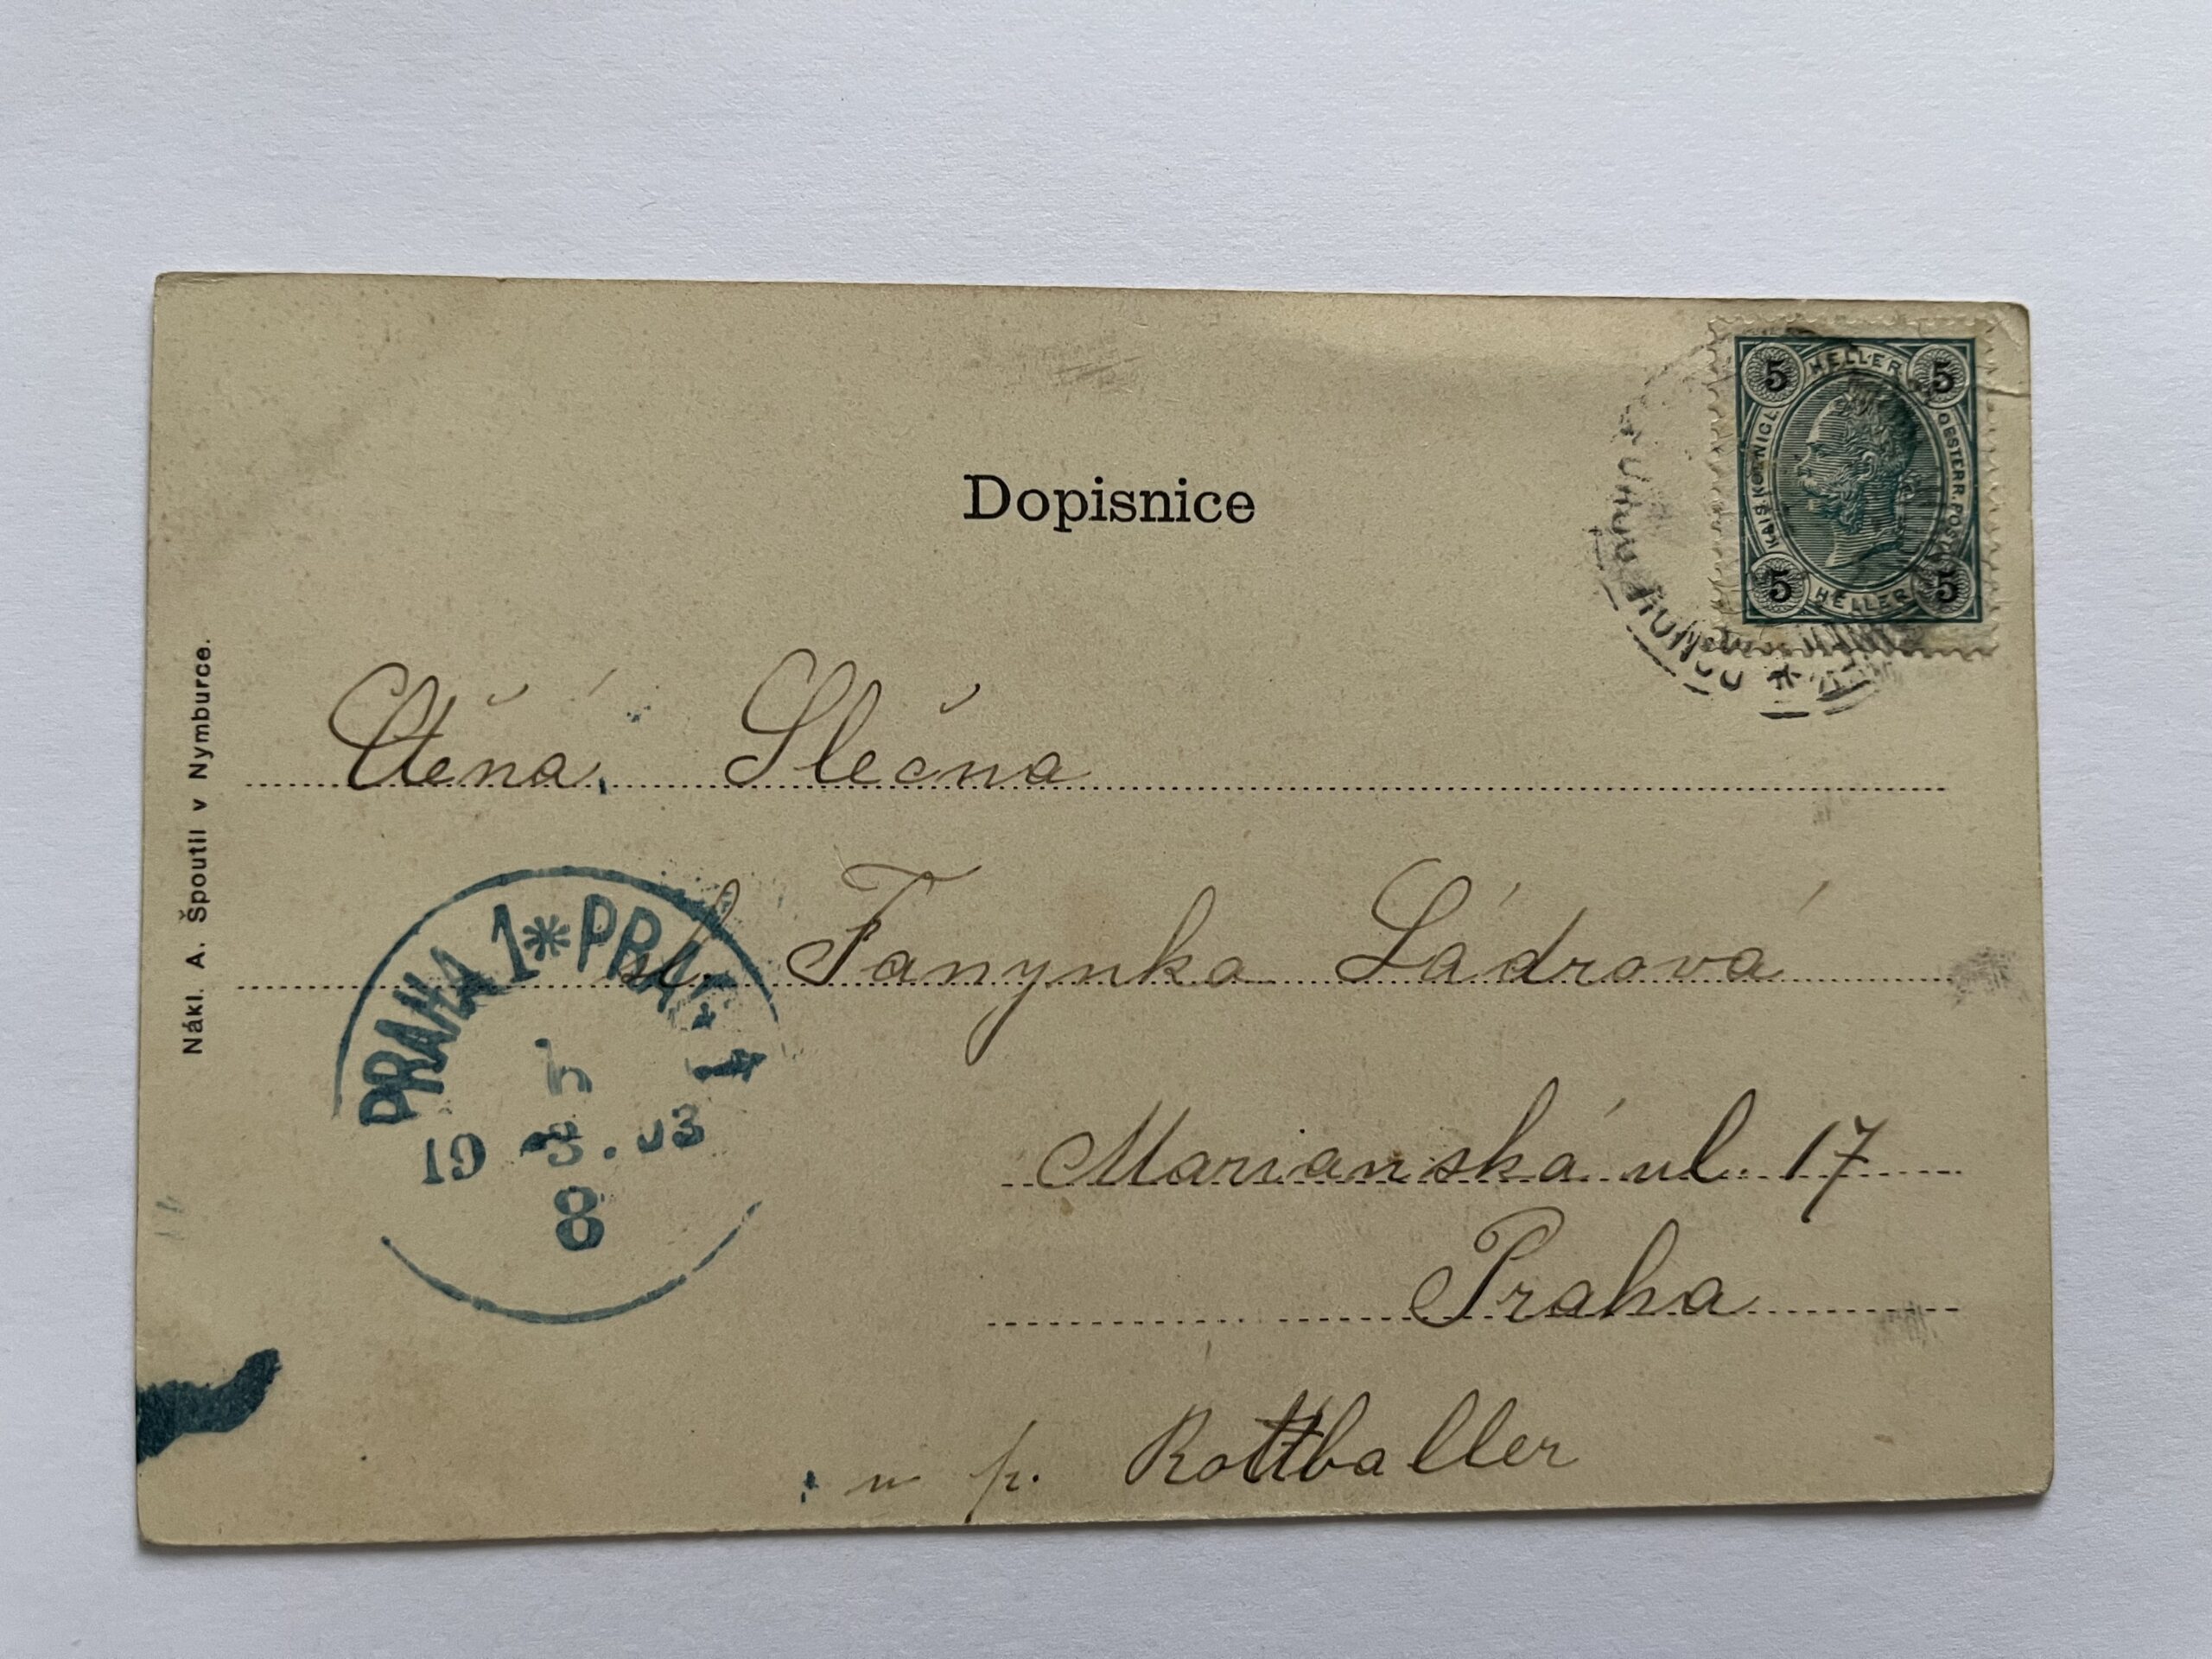 Dopisnice
5 HELLER 5
KAIS. KOENIGL. OESTERR. POST
5 HELLER 5
Ctěná Slečna
sl. Fanynka Ládrová
Marianská ul. 17
Praha
u p. Rottballer
Nákl. A. Špoutil v Nymburce.
PRAHA 1 * PRAG 1
19 03
8